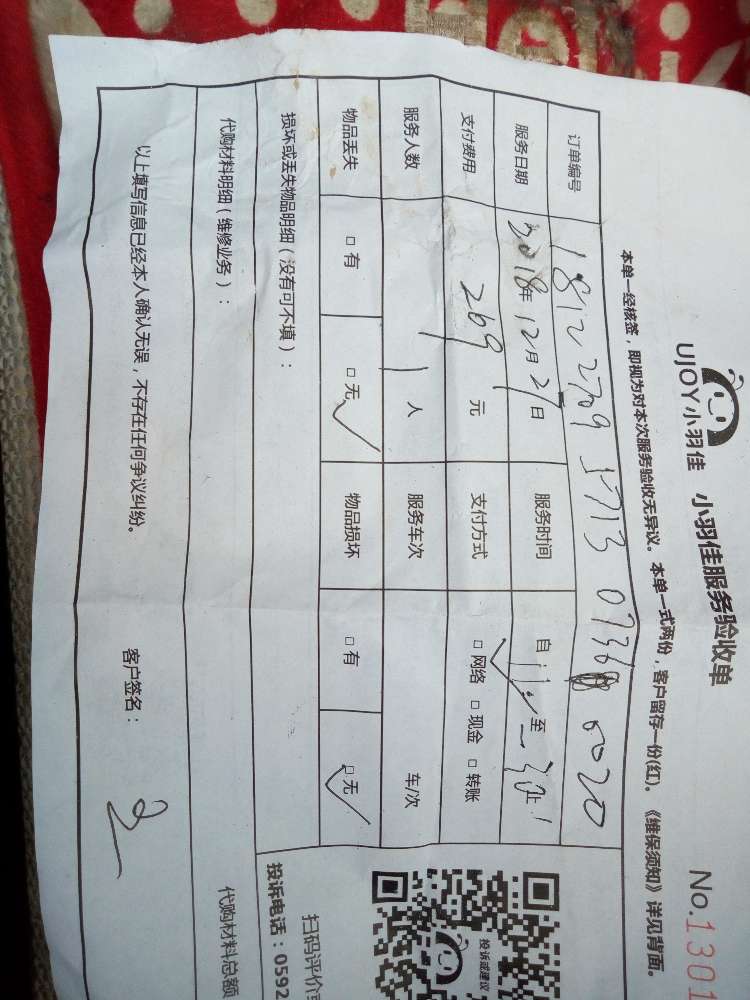 UJOY小羽佳 小羽佳服务验收单 No.1301
本单一经核签，即视为对本次服务验收无异议。本单一式两份，客户留存一份(红)。《维保须知》详见背面。
订单编号
服务日期 2018年12月27日 服务时间 自 至
支付费用 269 元 支付方式 □网络 □现金 □转账
服务人数 1 人 服务车次 车/次
物品丢失 □有 □无 物品损坏 □有 □无
损坏或丢失物品明细（没有可不填）：
代购材料明细（维修业务）：
代购材料总额
以上填写信息已经本人确认无误，不存在任何争议纠纷。 客户签名：
投诉或建议
扫码评价
投诉电话：0592